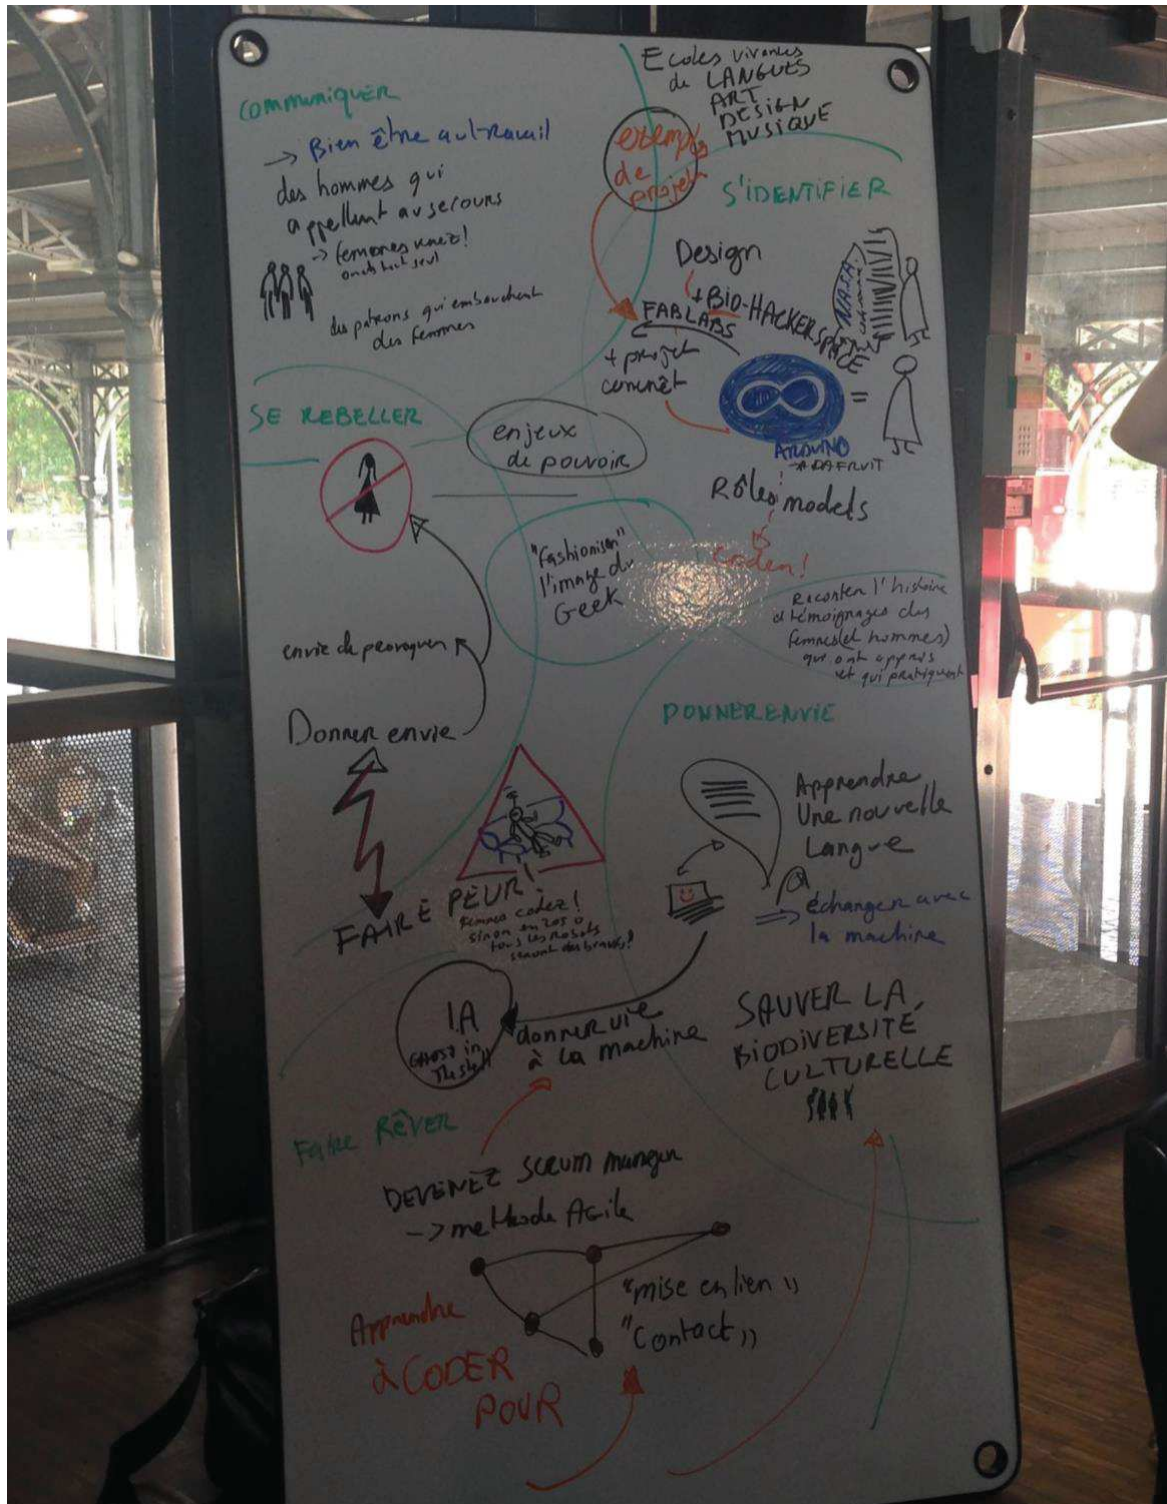 COMMUNIQUER
→ Bien être au travail
des hommes qui
appellent au secours
→ femmes venez!
on est tout seul
des patrons qui embauchent
des femmes
Ecoles vivantes
de LANGUES
ART
DESIGN
MUSIQUE
exemples
de
projets
S'IDENTIFIER
Design
+ BIO-HACKERSPACE
FABLABS
+ projet
concret
NASA
=
ARDUINO
→ ADAFRUIT
Rôles models
coder!
SE REBELLER
enjeux
de pouvoir
"Fashioniser"
l'image du
Geek
Raconter l'histoire
et témoignages des
femmes (et hommes)
qui ont appris
et qui pratiquent
envie de provoquer
Donner envie
FAIRE PEUR!
Femmes codez!
sinon en 2050
tous les robots
seront des
DONNER ENVIE
Apprendre
Une nouvelle
Langue
⇒ échanger avec
la machine
I.A
GHOST in
donner vie
à la machine
SAUVER LA
BIODIVERSITÉ
CULTURELLE
FAIRE RÊVER
DEVENEZ SCRUM manager
→ methode Agile
"mise en lien"
"Contact"
Apprendre
à CODER
POUR